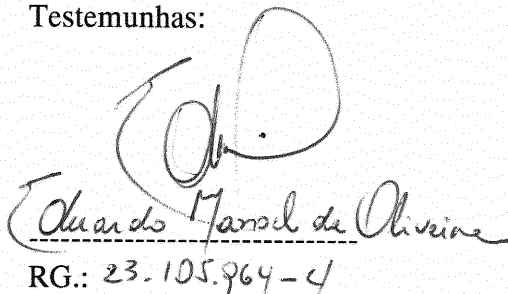 Testemunhas:
Eduardo Manoel de Oliveira
RG.: 23.105.964-4